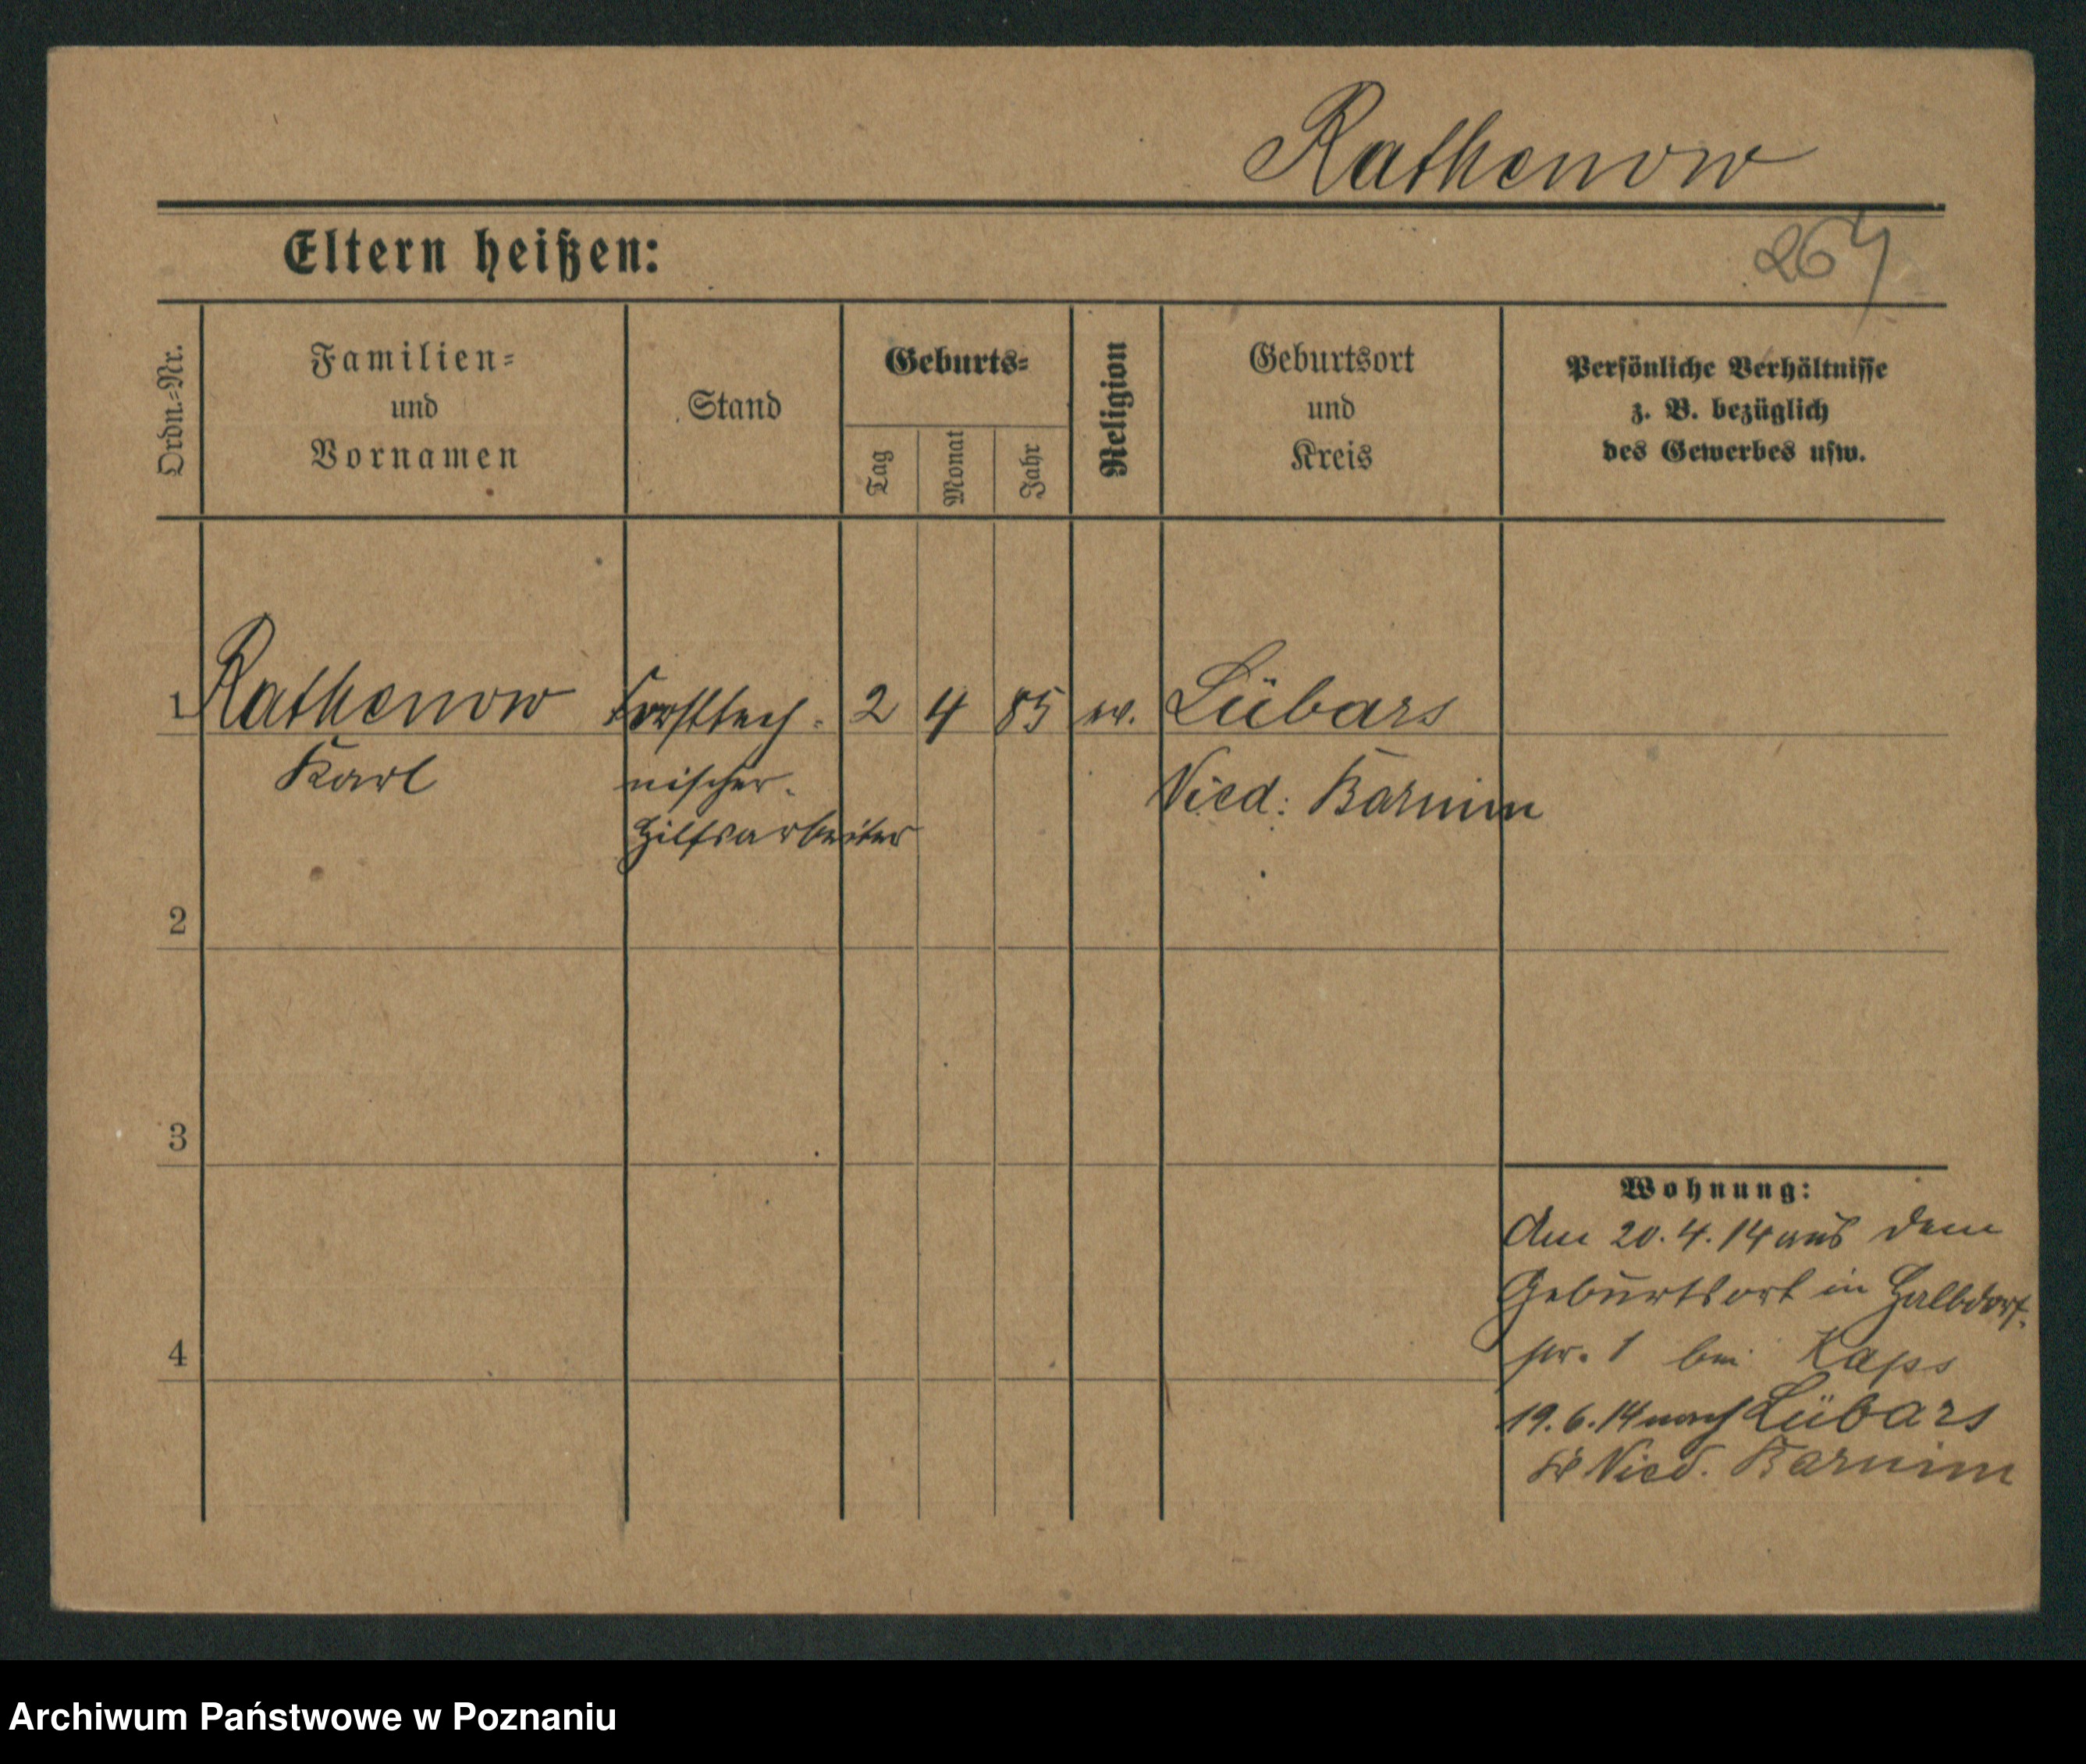 Rathenow
264
Eltern heißen:
Ordn.-Nr.
Familien-
und
Vornamen
Stand
Geburts-
Tag
Monat
Jahr
Religion
Geburtsort
und
Kreis
Persönliche Verhältnisse
z. B. bezüglich
des Gewerbes usw.
1 Rathenow Forsttech- 2 4 85 ev. Lübars
Karl nischer Nied: Barnim
Hilfsarbeiter
2
3
4
Wohnung:
Am 20.4.14 aus dem
Geburtsort in Halbdorf-
str. 1 bei Kaps
19.6.14 nach Lübars
Kr Nied. Barnim
Archiwum Państwowe w Poznaniu